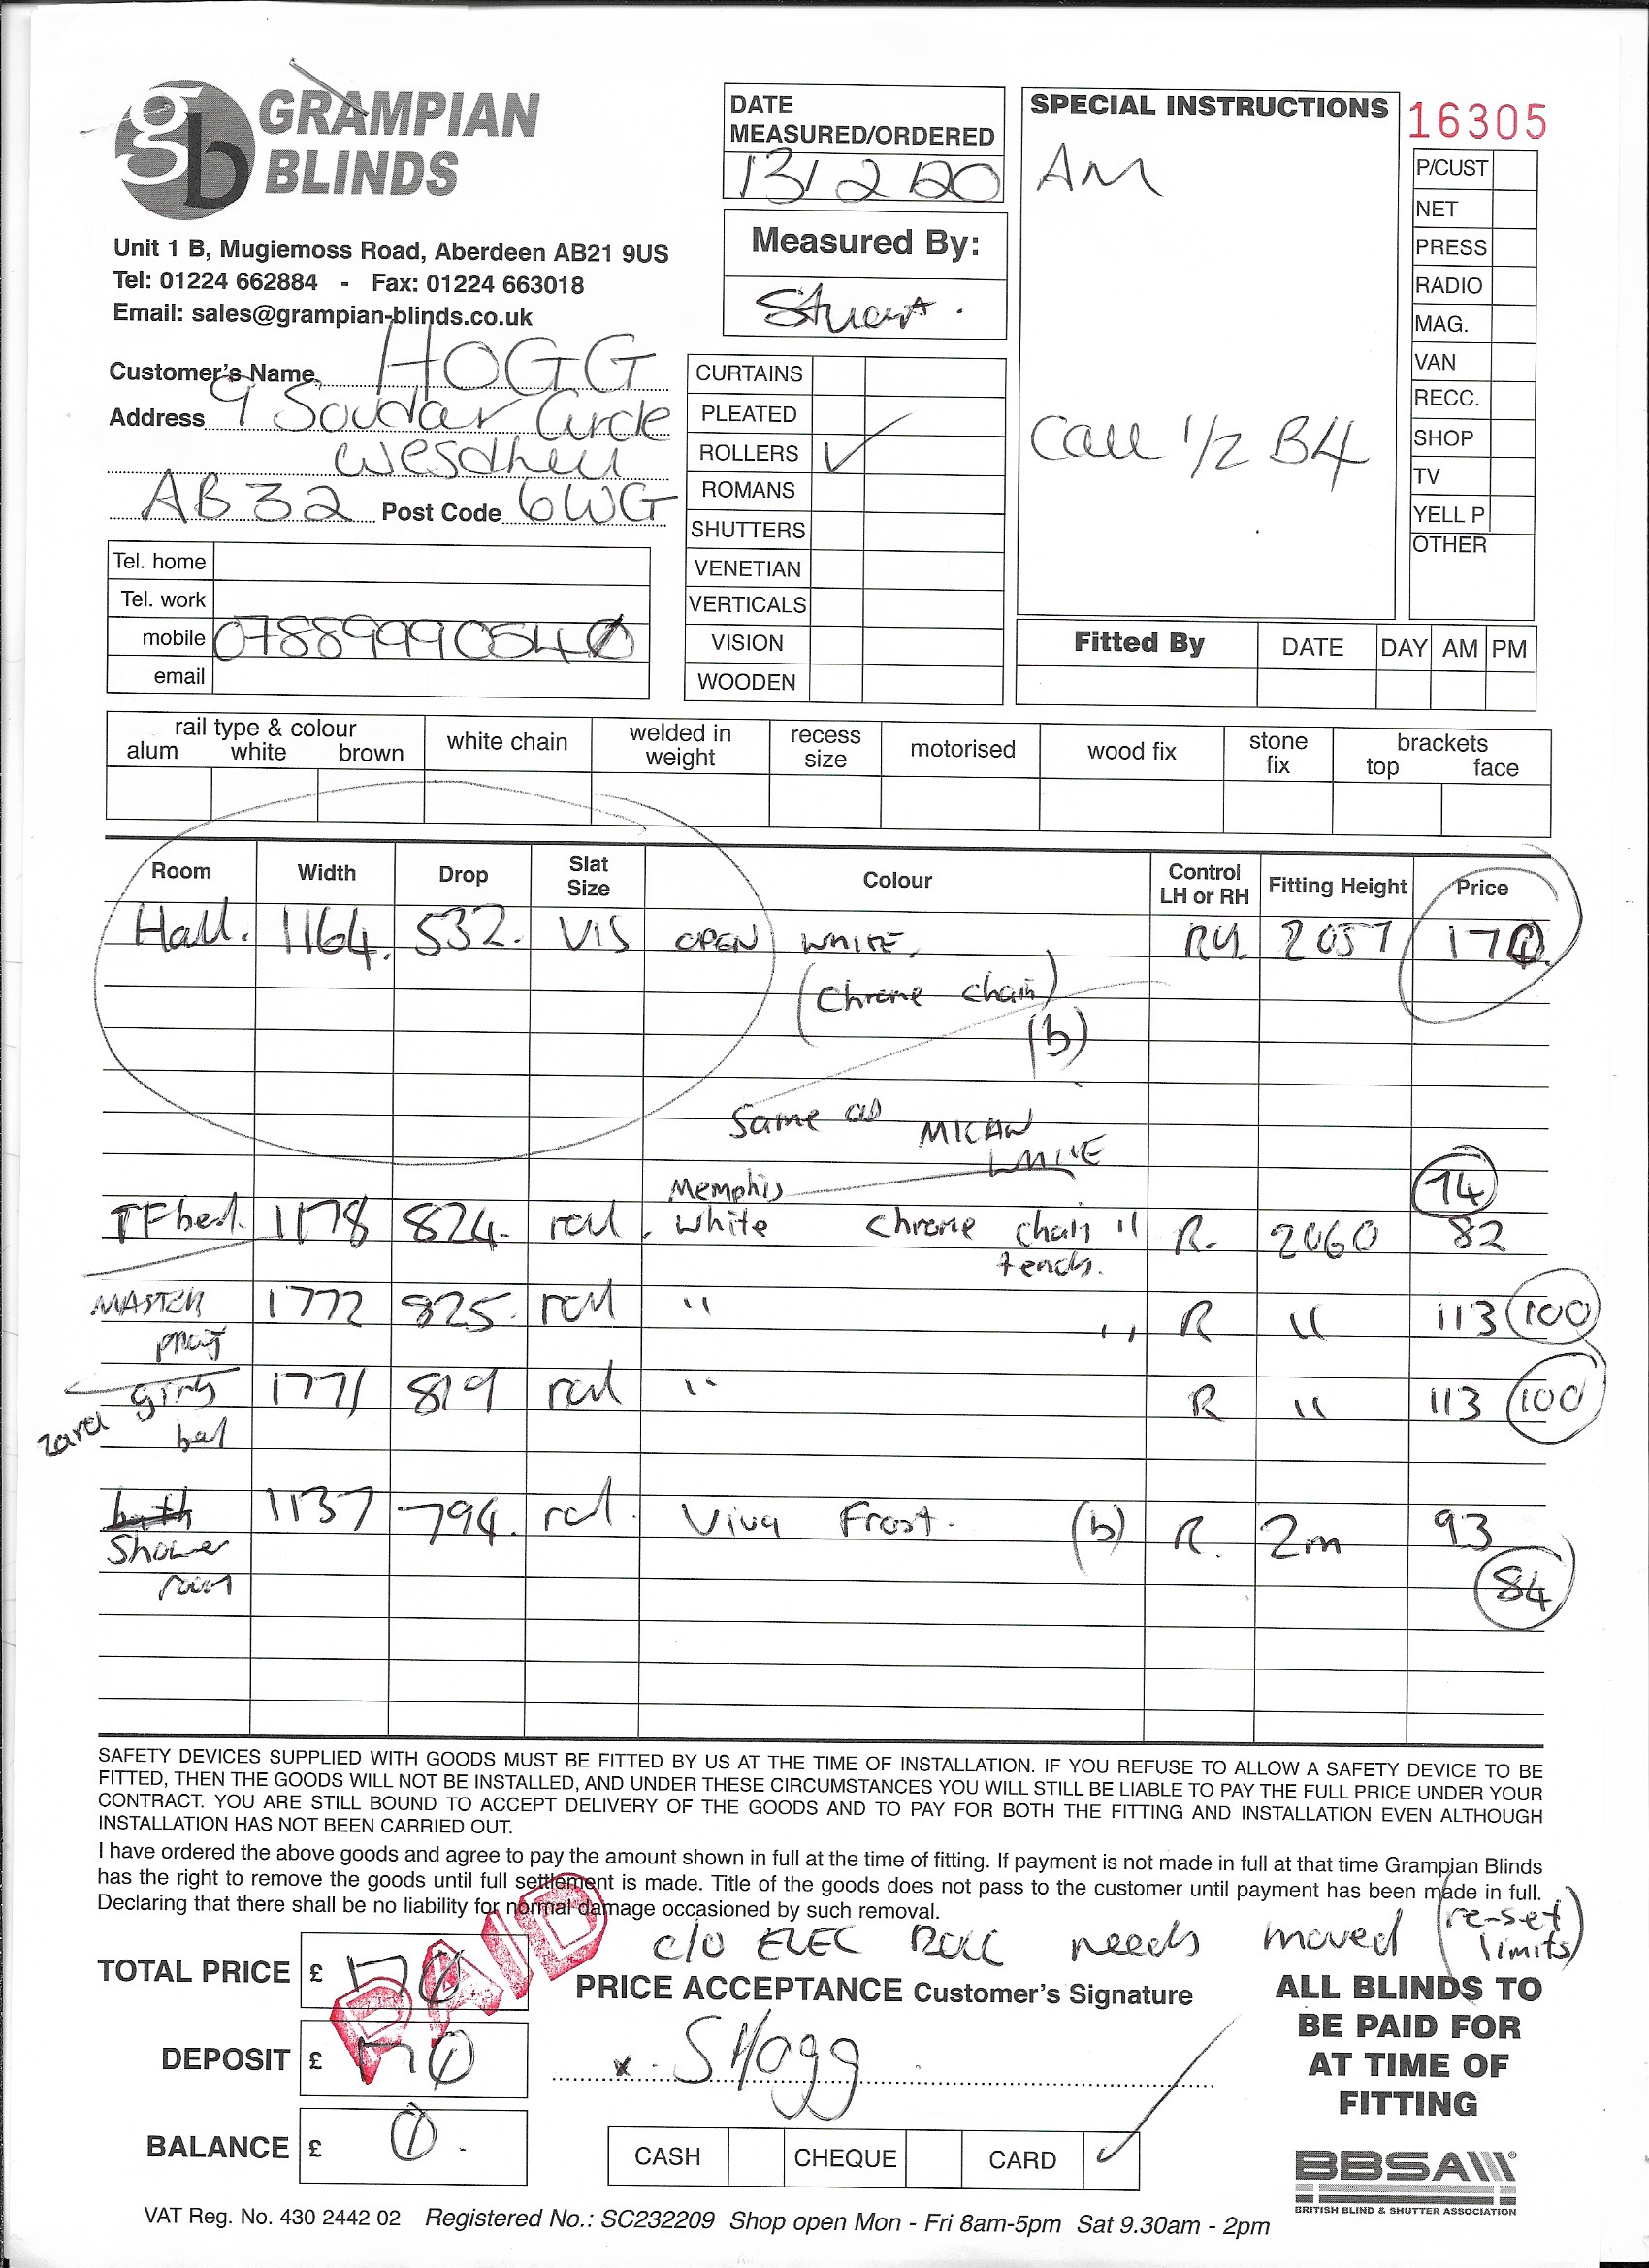 gb GRAMPIAN
BLINDS
Unit 1 B, Mugiemoss Road, Aberdeen AB21 9US
Tel: 01224 662884 - Fax: 01224 663018
Email: sales@grampian-blinds.co.uk
Customer's Name HOGG
Address 9 Souter Circle
Wesdhill
AB32 Post Code 6WG
Tel. home
Tel. work
mobile 07889990540
email
DATE
MEASURED/ORDERED
13/2/20
Measured By:
Stuart.
CURTAINS
PLEATED
ROLLERS ✓
ROMANS
SHUTTERS
VENETIAN
VERTICALS
VISION
WOODEN
SPECIAL INSTRUCTIONS
AM
Call 1/2 B4
16305
P/CUST
NET
PRESS
RADIO
MAG.
VAN
RECC.
SHOP
TV
YELL P
OTHER
Fitted By DATE DAY AM PM
rail type & colour
alum white brown
white chain
welded in
weight
recess
size
motorised
wood fix
stone
fix
brackets
top face
Room Width Drop Slat Size Colour Control LH or RH Fitting Height Price
Hall. 1164. 532. VIS OPEN WHITE. RH. 2057 170.
(Chrome chain)
(b)
Same as MILAN
WHITE
Memphis 74
TF bed. 1178 824. roll. white chrome chain " R. 2060 82
+ ends.
MASTER 1772 825. roll " " R " 113 100
girls 1771 819 roll " R " 113 100
zara bed
bath 1137 794. rol. Viva Frost. (b) R. 2m 93
Shower
room 84
SAFETY DEVICES SUPPLIED WITH GOODS MUST BE FITTED BY US AT THE TIME OF INSTALLATION. IF YOU REFUSE TO ALLOW A SAFETY DEVICE TO BE
FITTED, THEN THE GOODS WILL NOT BE INSTALLED, AND UNDER THESE CIRCUMSTANCES YOU WILL STILL BE LIABLE TO PAY THE FULL PRICE UNDER YOUR
CONTRACT. YOU ARE STILL BOUND TO ACCEPT DELIVERY OF THE GOODS AND TO PAY FOR BOTH THE FITTING AND INSTALLATION EVEN ALTHOUGH
INSTALLATION HAS NOT BEEN CARRIED OUT.
I have ordered the above goods and agree to pay the amount shown in full at the time of fitting. If payment is not made in full at that time Grampian Blinds
has the right to remove the goods until full settlement is made. Title of the goods does not pass to the customer until payment has been made in full.
Declaring that there shall be no liability for normal damage occasioned by such removal.
c/o ELEC ROLL needs moved (re-set
limits)
PAID
TOTAL PRICE £ 170
DEPOSIT £ 170
BALANCE £ 0.
PRICE ACCEPTANCE Customer's Signature
x. SHogg
CASH CHEQUE CARD ✓
ALL BLINDS TO
BE PAID FOR
AT TIME OF
FITTING
BBSA
BRITISH BLIND & SHUTTER ASSOCIATION
VAT Reg. No. 430 2442 02 Registered No.: SC232209 Shop open Mon - Fri 8am-5pm Sat 9.30am - 2pm